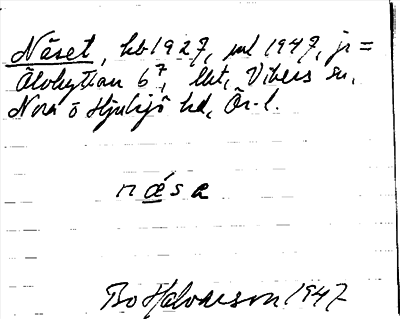 Näset, hb 1927, ml 1947, jr =
Ölobyttan 6⁷, lht, Vikers sn,
Nora o Hjulsjö hd, Ör-l.
næ´sa
Bo Halvarson 1947